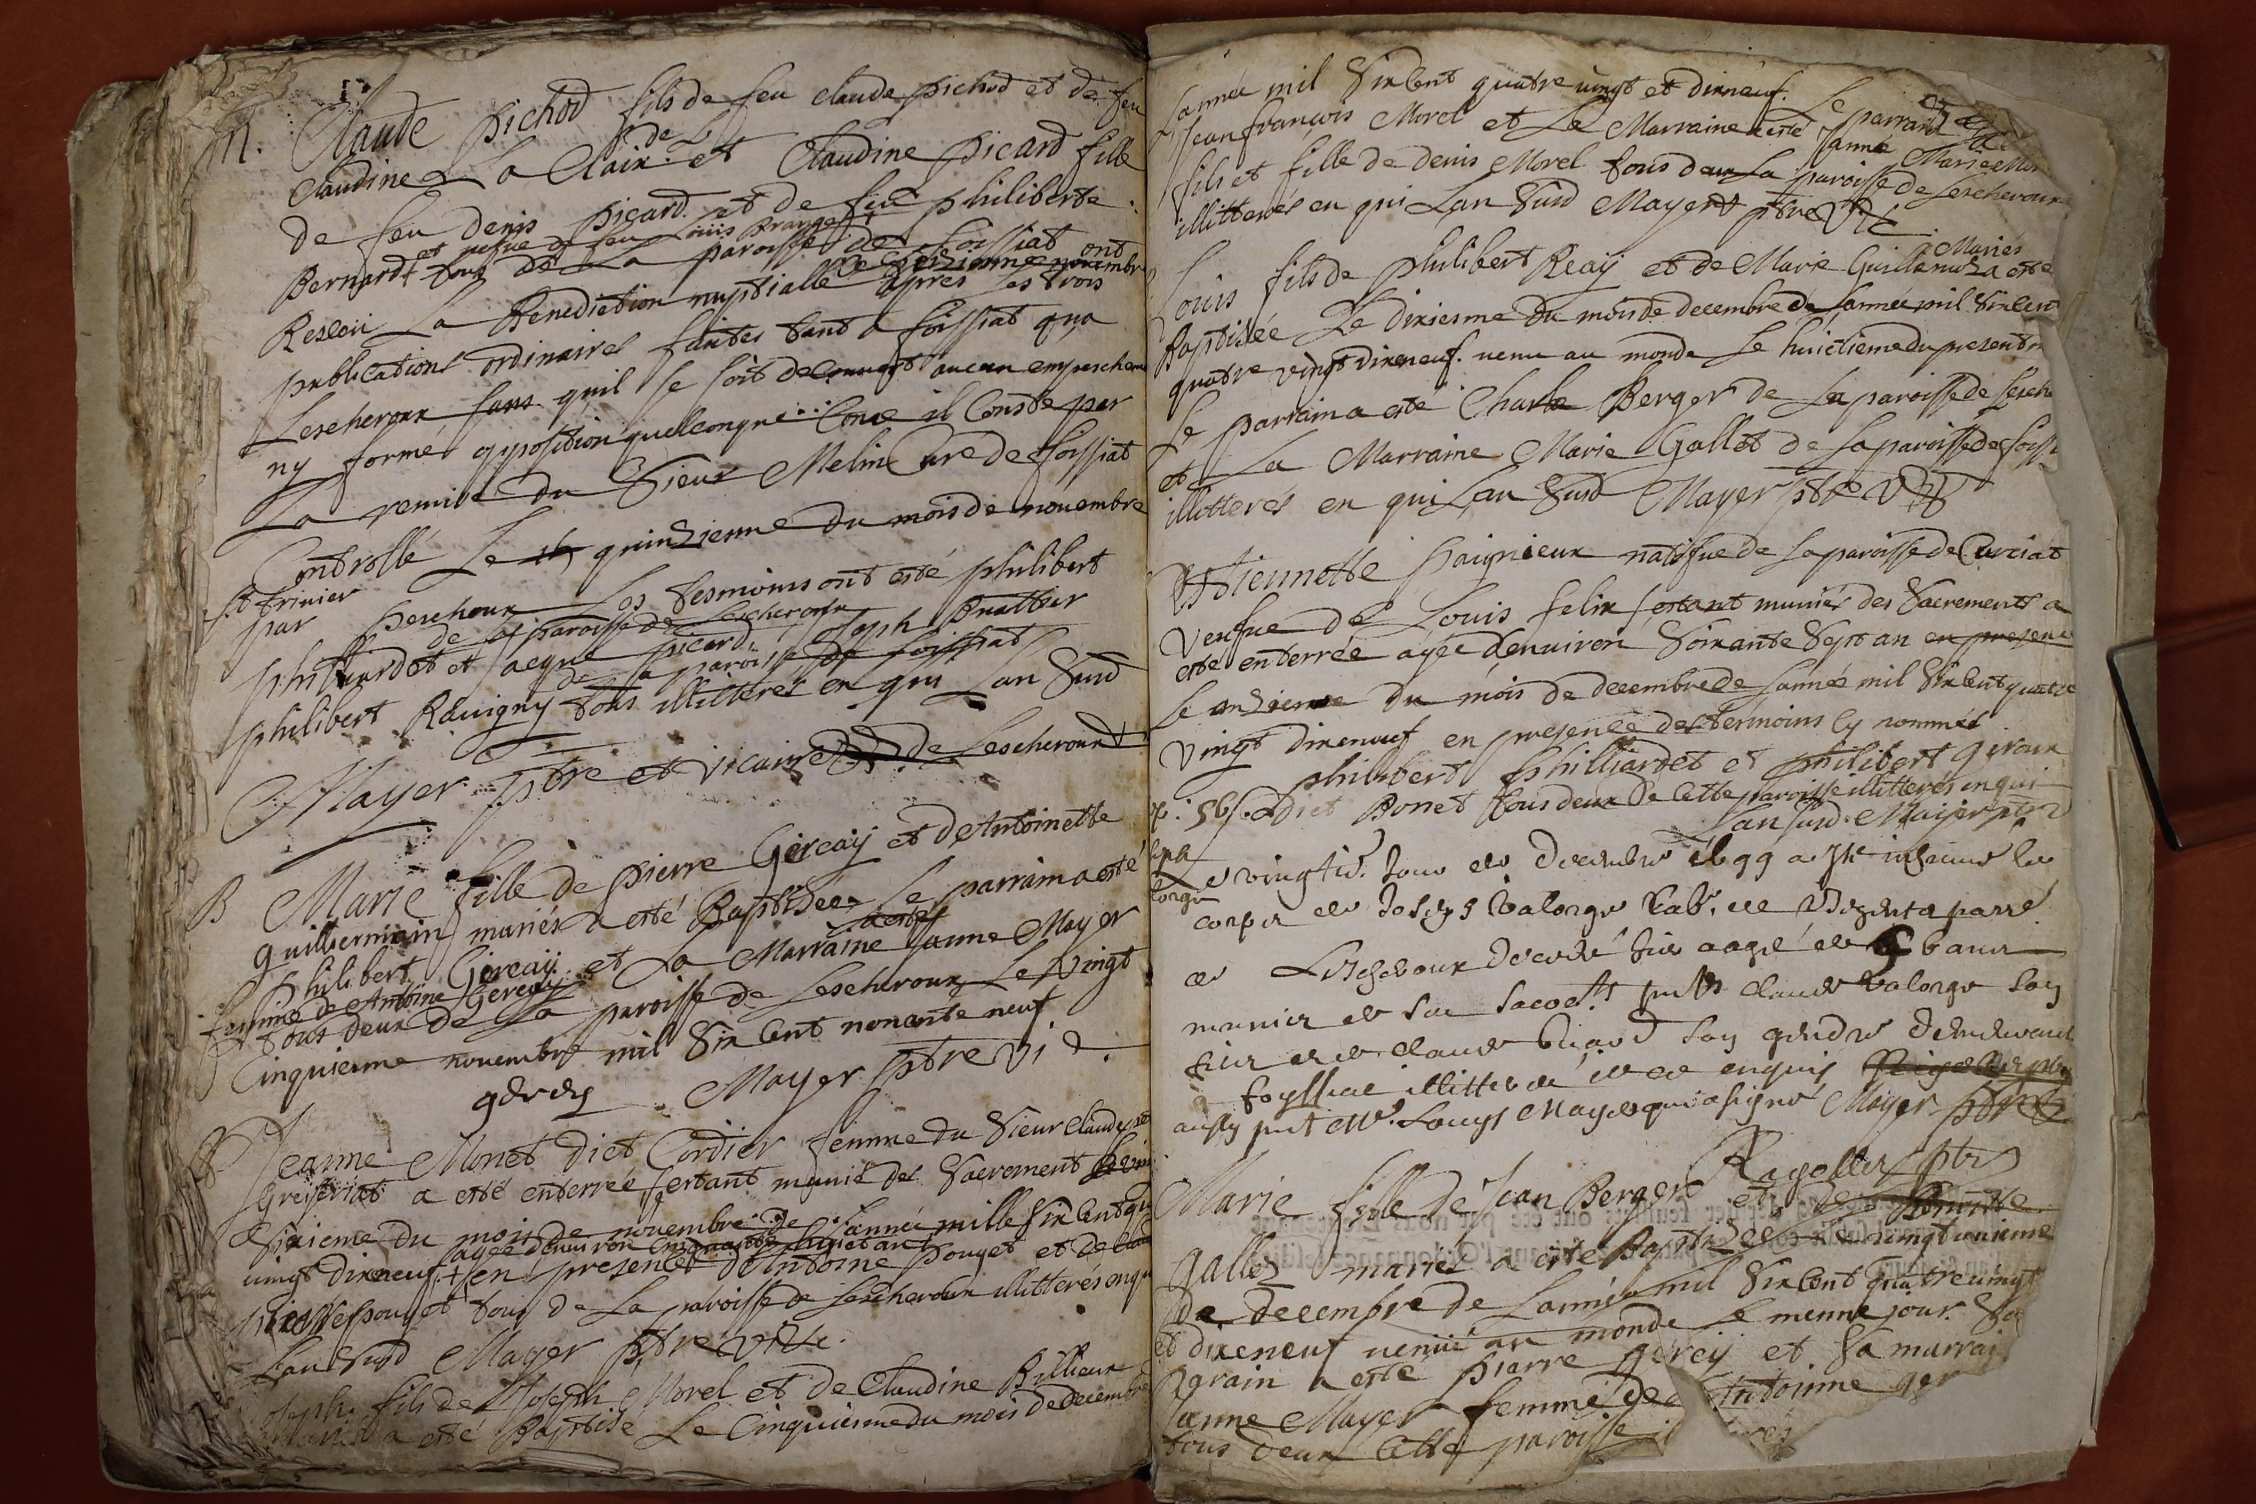 M. Claude pichod fils de feu claude pichod et de feu
Claudine de La Claix et Claudine picard fille
de feu denis picard et de feue philiberte
et vefue de feu Louis
Bernard tous de La paroisse de foissiat ont
Receu La Benediction nuptialle apres Les trois
publications ordinaires faites tant a foissiat qua
Lescheroux sans quil se soit decouuert aucun empeschem
ny formé opposition quelconque Come il Conste par
La remise du Sieur Melin Cure de foissiat
Controllé Le quinzienne du mois de nouembre
St trivier
par pescheur Les tesmoins ont esté philibert
de la paroisse de Lescheroux
philliardet et Jacque picard Joseph
de la paroisse de foissiat
philibert Rauigny tous illitterés en qui Lan Surd
Mayer ptre et vicaire de Lescheroux
B Marie fille de pierre Gereay et dAntoinette
guillermin mariés a esté Baptisée Le parrain a esté
philibert Gereay et La Marraine Janne Mayer
femme de Antoine Gereay
tous deux de La paroisse de Lescheroux Le vingt
Cinquienne nouembre mil Six Cent nonante neuf
Mayer ptre vi
Jeanne Monet dict Cordier femme du Sieur Claude
Greiseriat a esté enterrée sestant munie des Sacrement
Sixieme du mois de nouembre de Lannée mille Six Cent
agée denuiron Cinquante
uingt dixneuf + en presence de Antoine pouget et de
pouget tous de La paroisse de Lescheroux illitterés
Lan Surd Mayer ptre vic
Joseph fils de Joseph Morel et de Claudine Billieux
a esté Baptisé Le Cinquienne du mois de decembre
Lannée mil Six Cent quatre uingt et dixneuf. Le parrain
Jean françois Morel et La Marraine Janne Marie
fils et fille de denis Morel tous deux La paroisse de Lescheroux
illitterés en qui Lan Surd Mayer ptre vic
Mariés
Louis fils de philibert Reay et de Marie Guillemot a esté
Baptisée Le dixiesme du mois de decembre de Lannée mil Six Cent
quatre vingt dixneuf. uenu au monde Le huictieme du present
Le parrain a esté Charle Berger de La paroisse de
et La Marraine Marie Gallet de La paroisse de
illitterés en qui Lan Surd Mayer ptre
Estiennette paignieux natifue de La paroisse de Curciat
Vesfue de Louis felix sestant muniés des Sacrements a
esté enterrée agée denuiron Soixante Sept an en presence
Le onzieme du mois de decembre de Lannée mil Six Cent quatre
vingt dixneuf en presence des tesmoins Cy nommés
philibert philliardet et philibert giroux
dict Bonet tous deux de Cette paroisse illitterés en qui
Lan Surd Mayer ptre
vingtie Jour de Decembre 1699 a este inhume le
corps de Joseph Valorge
de Lescheroux decedé hier aagé de ans
munier de Sac claude Valorge son
fils et de claude son gendre demeurant
a foyssiat illitteré de ce enquis
aussy Louys Mayer qui a signé Mayer ptre
Ragollet ptre
Marie fille de Jean Berger et de
gallet mariés a esté Baptizée Le uingt unieme
de decembre de Lannée mil Six Cent quatre uingt
et dixneuf uenüe au monde Le menne jour. Sa
parain a esté piarre gerey et Sa marrai
Janne Mayer femme de Antoinne ger
tous deux Cette paroisse